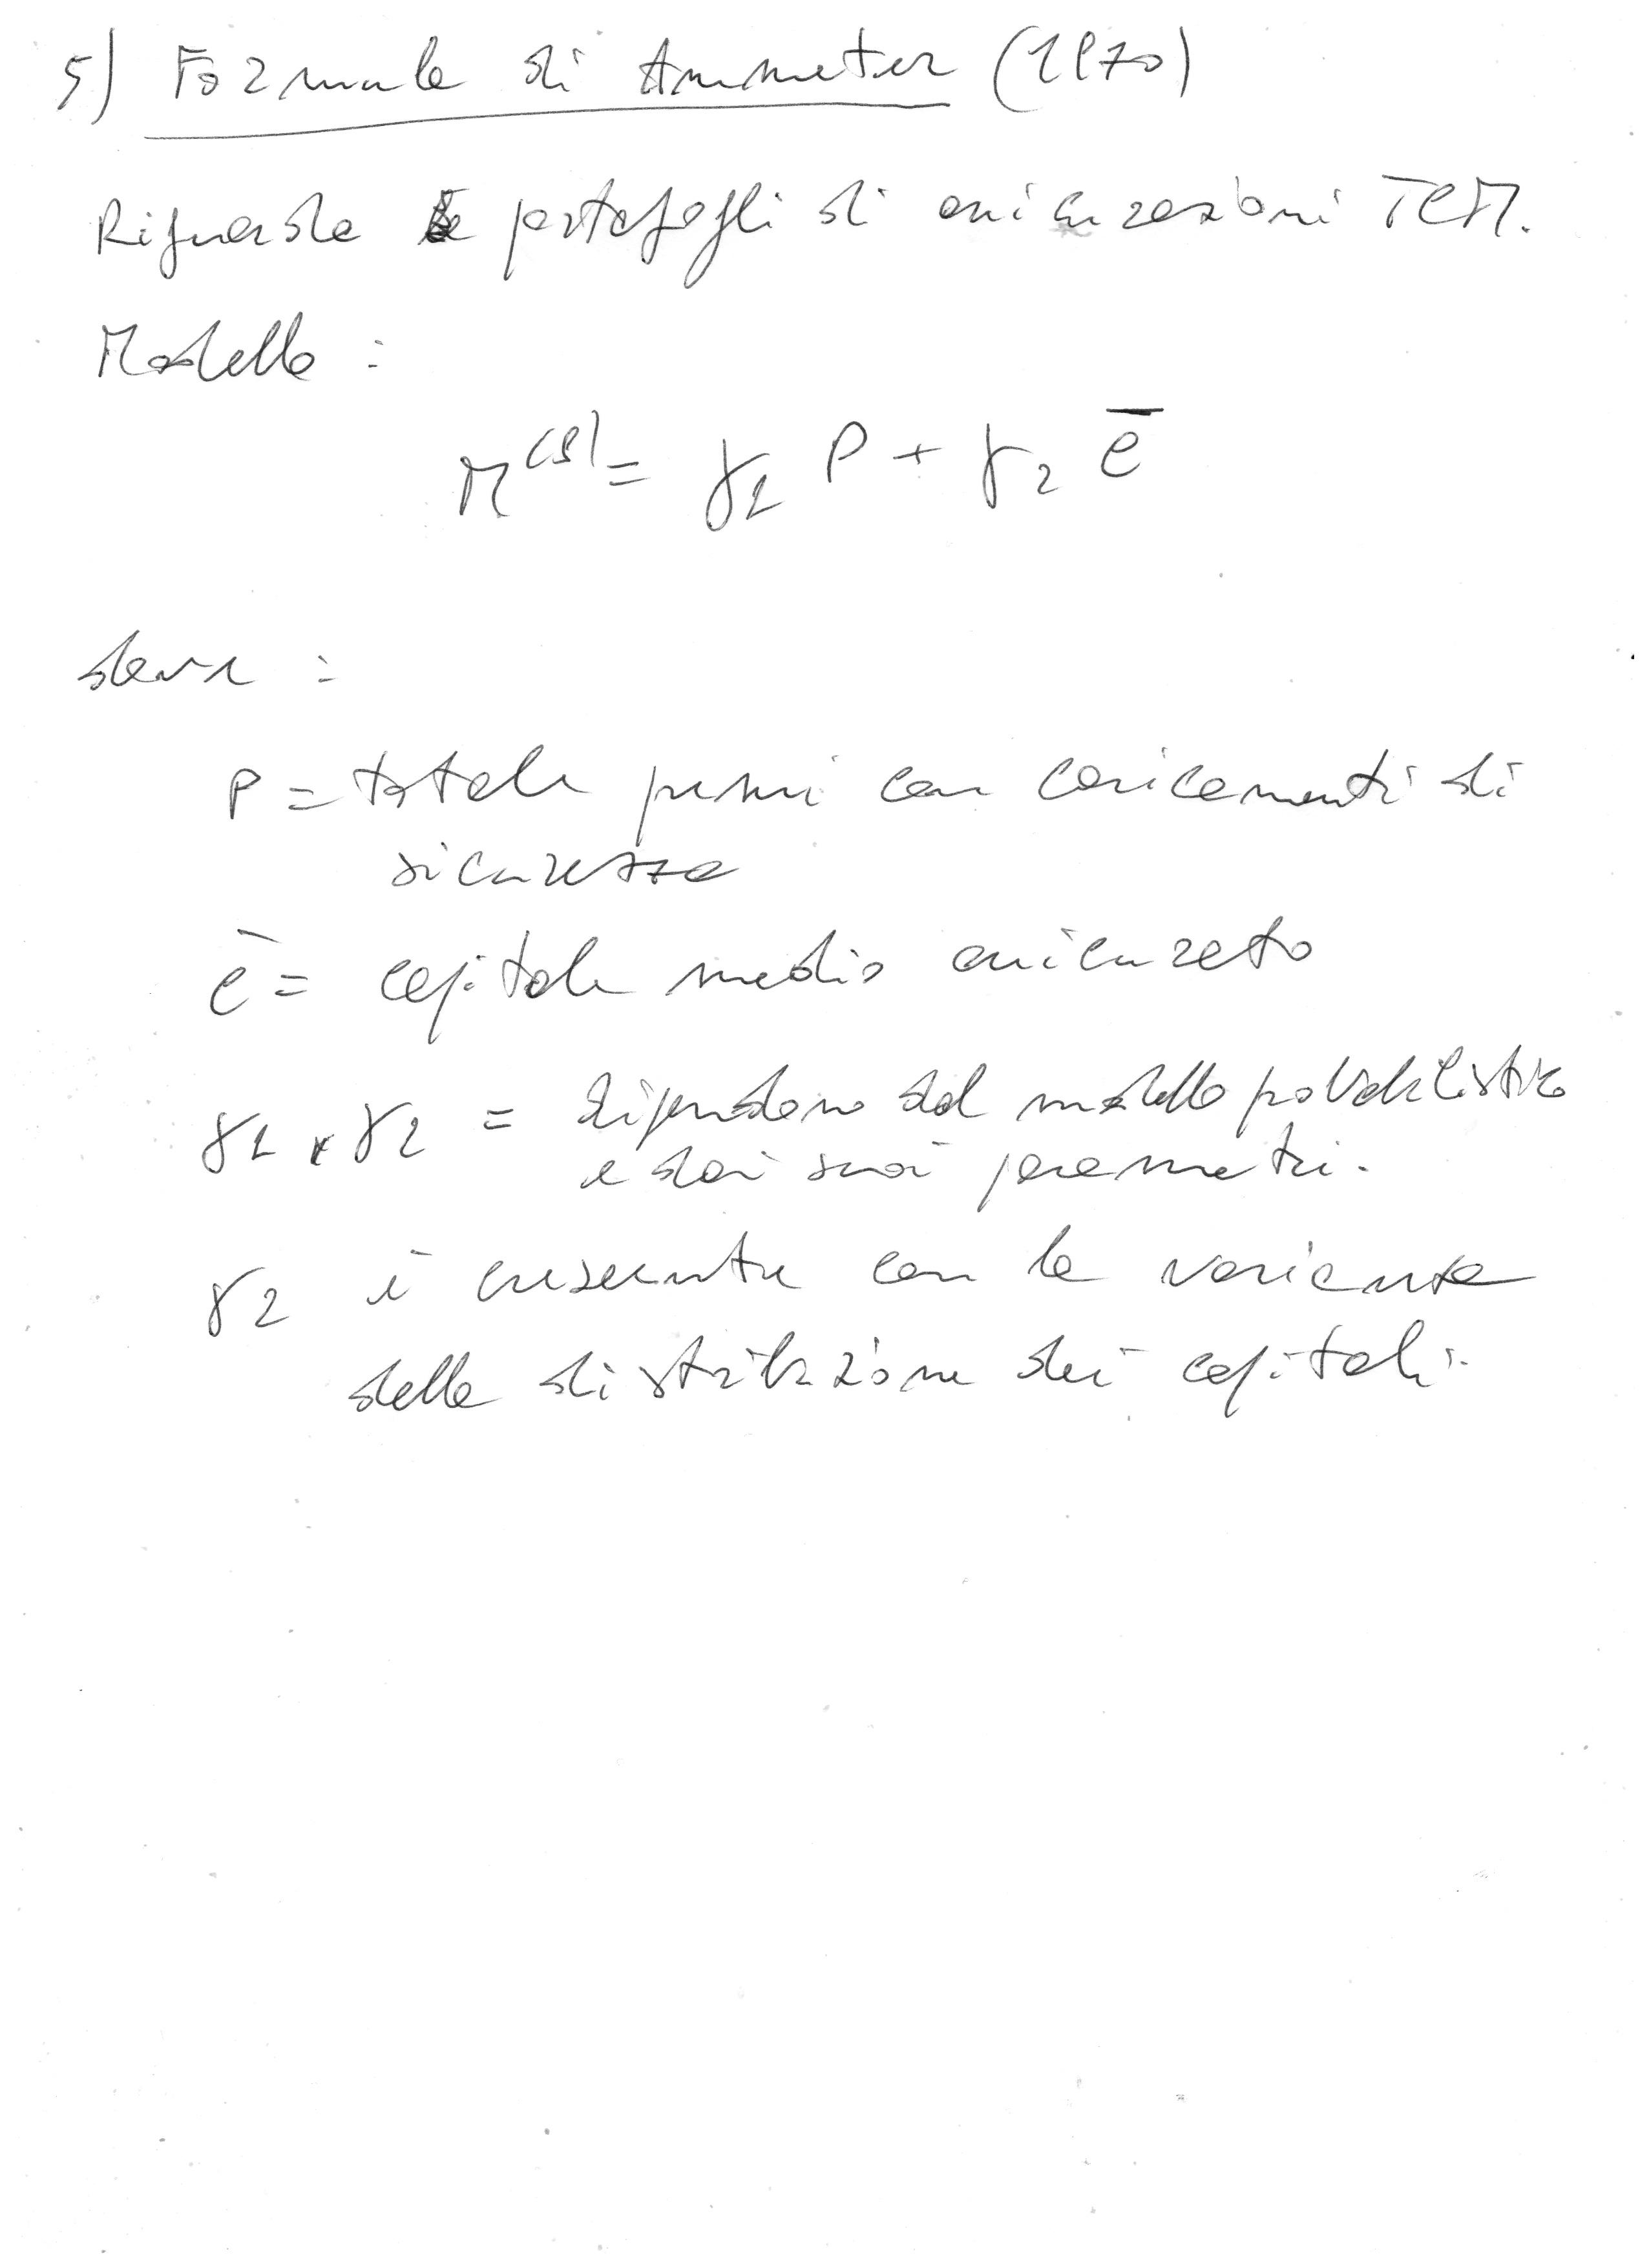 5) Formula di Ammeter (1970)
Riguarda portafogli di assicurazioni TCM.
Modello :
M^(S) = γ1 P + γ2 c̄
dove :
P = totale premi con caricamenti di
sicurezza
c̄ = capitale medio assicurato
γ1, γ2 = dipendono dal modello probabilistico
e dai suoi parametri.
γ2 è crescente con la varianza
della distribuzione dei capitali.